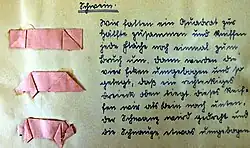 Schwein.
Wir falten ein Quadrat zur
Hälfte zusammen und kniffen
jede Fläche noch einmal zum
Bruch um. Dann werden die
vier Ecken umgebogen und so
gelegt, daß ein rechtwinkl.
Dreieck oben liegt. Dieses kniffen
wir als Bein nach unten.
Der Schwanz wird gedreht und
die Schnauze etwas umgebogen